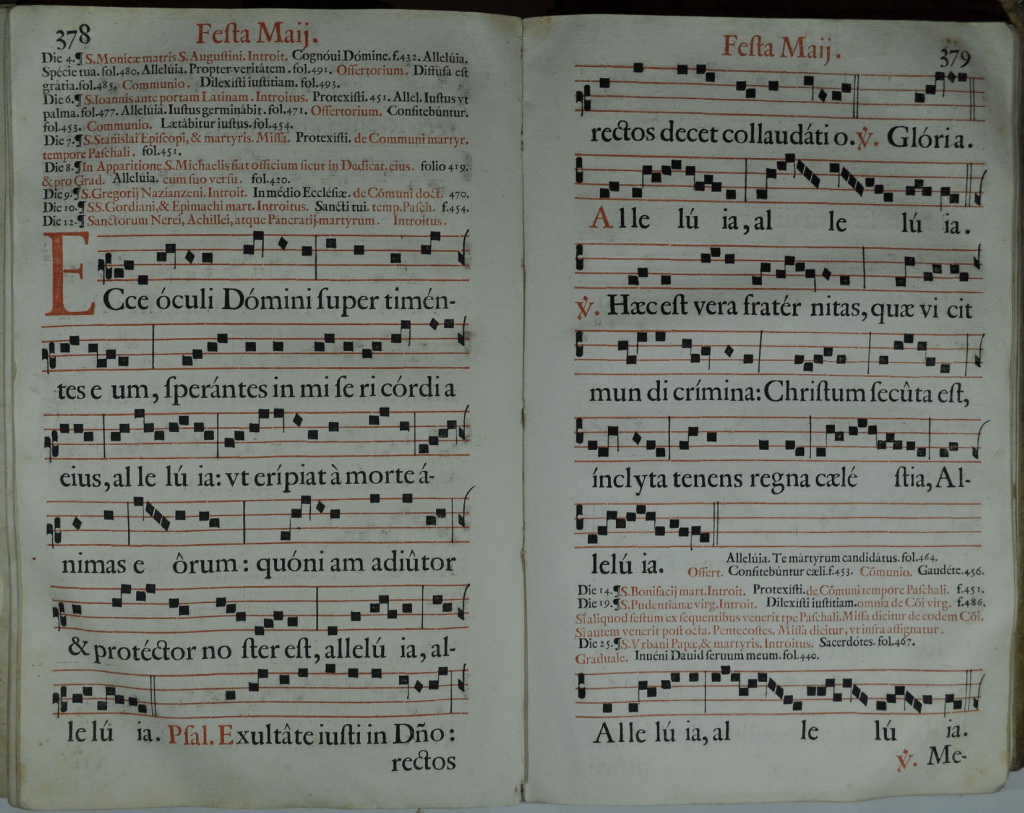 378
Feſta Maij.
Die 4.¶ S.Monicæ matris S. Auguſtini. Introit. Cognóui Dómine. f.432. Allelúia,
Spécie tua. fol.480. Allelúia. Propter veritátem. fol.491. Offertorium. Diffúſa eſt
grátia.fol.485. Communio. Dilexiſti iuſtítiam. fol.493.
Die 6.¶ S.Ioannis ante portam Latinam. Introitus. Protexíſti. 451. Allel. Iuſtus vt
palma.fol.477. Allelúia. Iuſtus germinábit. fol.471. Offertorium. Confitebúntur.
fol.453. Communio. Lætábitur iuſtus. fol.454.
Die 7.¶ S.Stanislai Epiſcopi, & martyris. Miſſa. Protexíſti. de Communi martyr.
tempore Paſchali. fol.451.
Die 8.¶ In Apparitione S.Michaelis fiat officium ſicut in Dedicat. eius. folio 419.
& pro Grad. Allelúia. cum ſuo verſu. fol.420.
Die 9.¶ S.Gregorij Nazianzeni. Introit. In médio Eccleſiæ. de Cõmuni doct. 470.
Die 10.¶ SS.Gordiani, & Epimachi mart. Introitus. Sancti tui. temp. Paſch. f.454.
Die 12.¶ Sanctorum Nerei, Achillei, atque Pancratij martyrum. Introitus.
ECce óculi Dómini ſuper timén-
tes e um, ſperántes in mi ſe ri córdi a
eius, al le lú ia: vt erípiat à morte á-
nimas e ôrum: quóni am adiûtor
& protéctor no ſter eſt, allelú ia, al-
le lú ia. Pſal. Exultâte iuſti in Dño:
rectos
Feſta Maij.
379
rectos decet collaudáti o. ℣. Glóri a.
Alle lú ia, al le lú ia.
℣. Hæc eſt vera fratér nitas, quæ vi cit
mun di crímina: Chriſtum ſecûta eſt,
ínclyta tenens regna cælé ſtia, Al-
lelú ia.
Allelúia. Te mártyrum candidátus. fol.464.
Offert. Confitebúntur cæli.f.453. Cõmunio. Gaudéte.456.
Die 14.¶ S.Bonifacij mart. Introit. Protexíſti. de Cõmuni tempore Paſchali. f.451.
Die 19.¶ S.Pudentianæ virg. Introit. Dilexiſti iuſtítiam. omnia de Cõi virg. f.486.
Si aliquod feſtum ex ſequentibus venerit tpe Paſchali. Miſſa dicitur de eodem Cõi.
Si autem venerit poſt octa. Pentecoſtes. Miſſa dicitur, vt infra aſſignatur.
Die 25.¶ S.Vrbani Papæ, & martyris. Introitus. Sacerdótes. fol.467.
Graduale. Inuéni Dauid ſeruum meum. fol.440.
Alle lú ia, al le lú ia.
℣. Me-